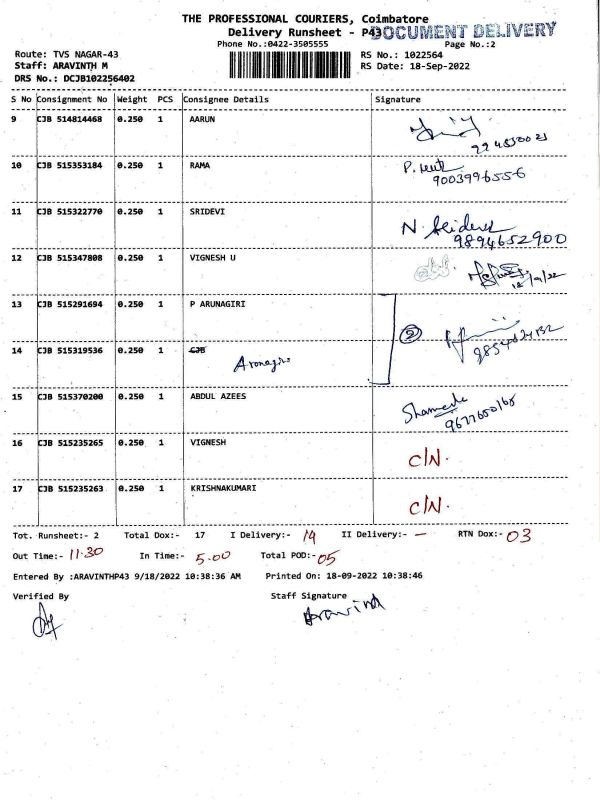 THE PROFESSIONAL COURIERS, Coimbatore
Delivery Runsheet - P43
DOCUMENT DELIVERY
Phone No.:0422-3505555
Page No.:2
Route: TVS NAGAR-43
RS No.: 1022564
Staff: ARAVINTH M
RS Date: 18-Sep-2022
DRS No.: DCJB102256402
S No Consignment No Weight PCS Consignee Details Signature
9 CJB 514814468 0.250 1 AARUN
10 CJB 515353184 0.250 1 RAMA
9003996556
11 CJB 515322770 0.250 1 SRIDEVI
9894652900
12 CJB 515347808 0.250 1 VIGNESH U
13 CJB 515291694 0.250 1 P ARUNAGIRI
2
14 CJB 515319536 0.250 1 CJB
15 CJB 515370200 0.250 1 ABDUL AZEES
9677650165
16 CJB 515235265 0.250 1 VIGNESH C/N.
17 CJB 515235263 0.250 1 KRISHNAKUMARI C/N.
Tot. Runsheet:- 2 Total Dox:- 17 I Delivery:- 14 II Delivery:- — RTN Dox:- 03
Out Time:- 11.30 In Time:- 5.00 Total POD:- 05
Entered By :ARAVINTHP43 9/18/2022 10:38:36 AM Printed On: 18-09-2022 10:38:46
Verified By Staff Signature
Aravind